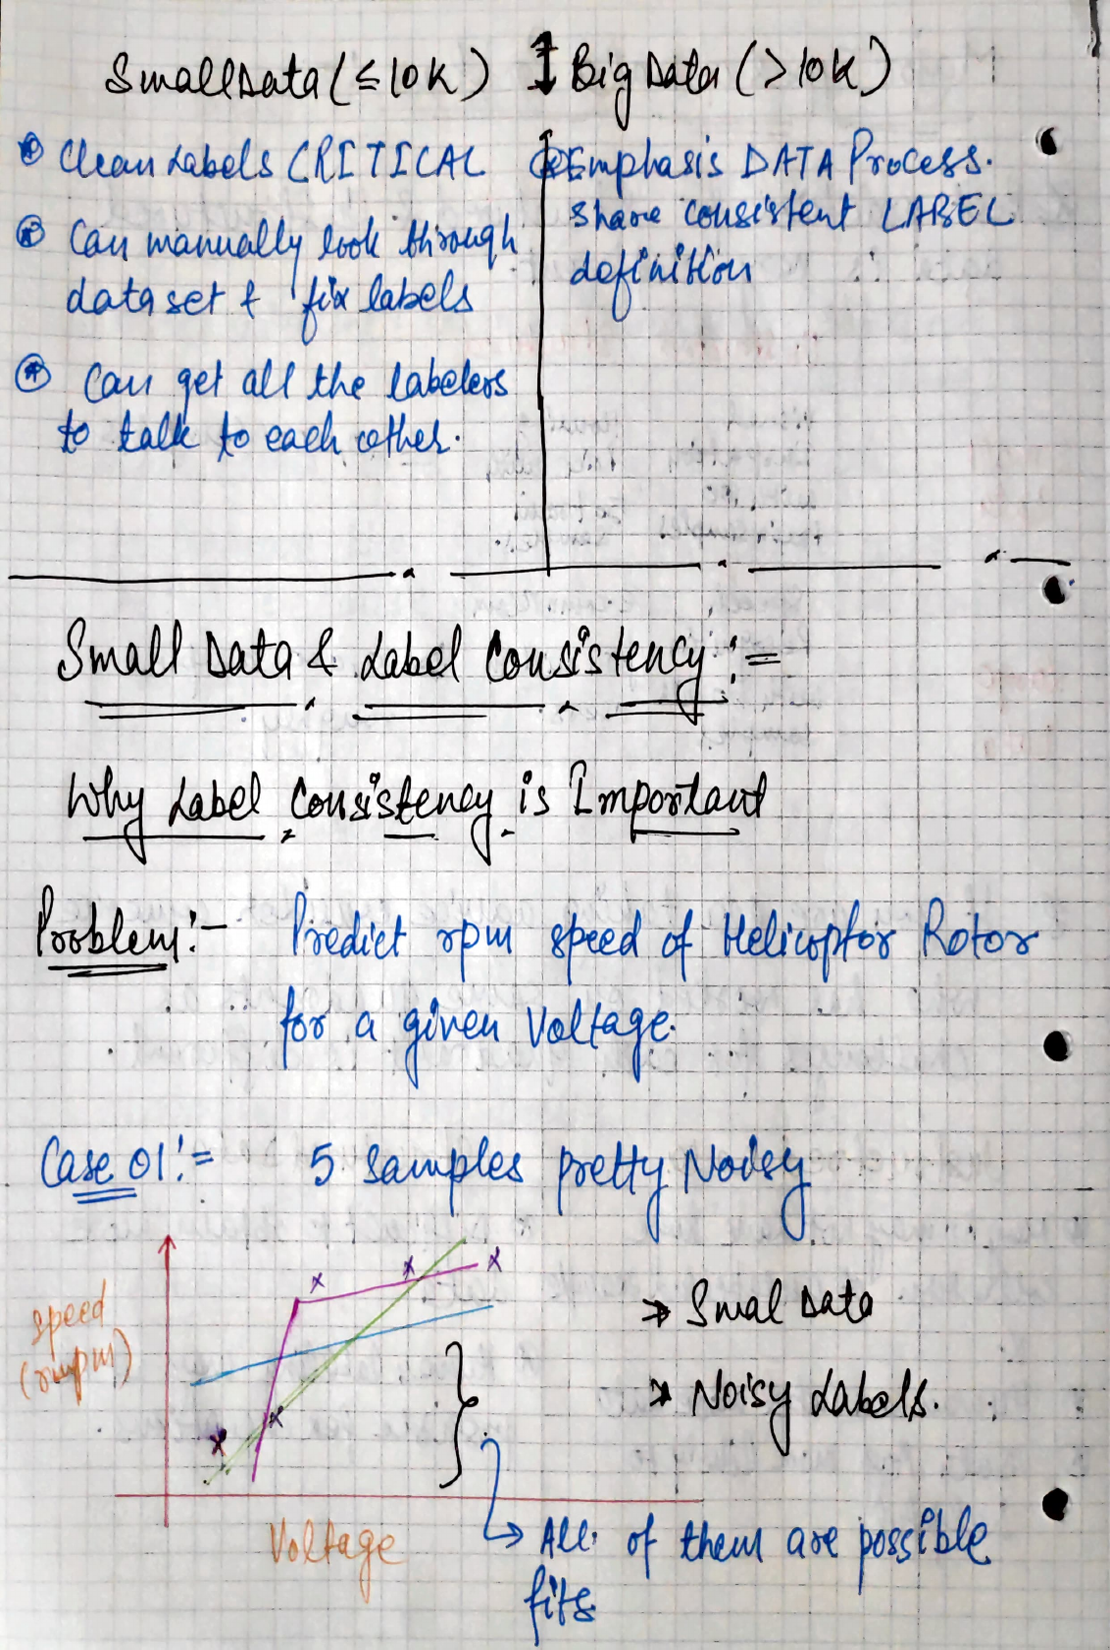 Small Data (≤ 10K)
Clean Labels CRITICAL
Can manually look through
dataset & fix labels
Can get all the labelers
to talk to each other.
Big Data (>10K)
Emphasis DATA Process.
share consistent LABEL
definition
Small Data & Label Consistency :=
Why Label Consistency is Important
Problem :- Predict rpm speed of Helicoptor Rotor
for a given Voltage.
Case 01 := 5 Samples pretty Noisy
speed
(rpm)
Voltage
→ Smal Data
→ Noisy Labels.
All of them are possible
fits